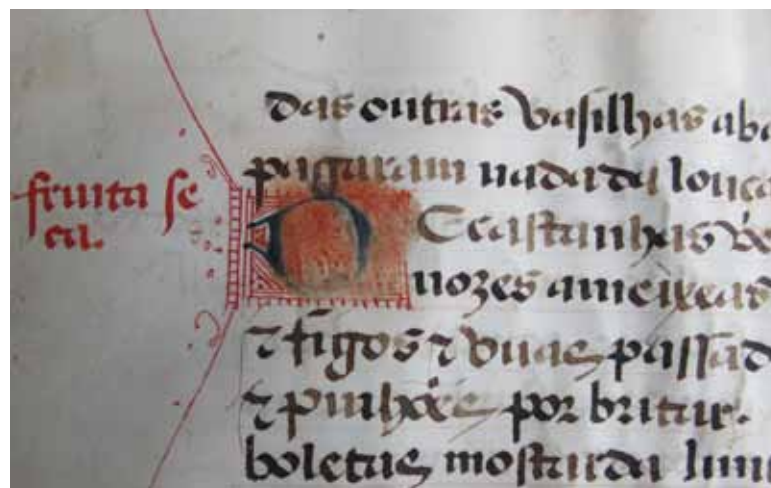 fruita se
ca.
das outras vasilhas aba
pagaram nada da louça
De castanhas
nozes ameixeas
⁊ figos ⁊ vuas passad
⁊ pinhões por britar.
boletas mostarda